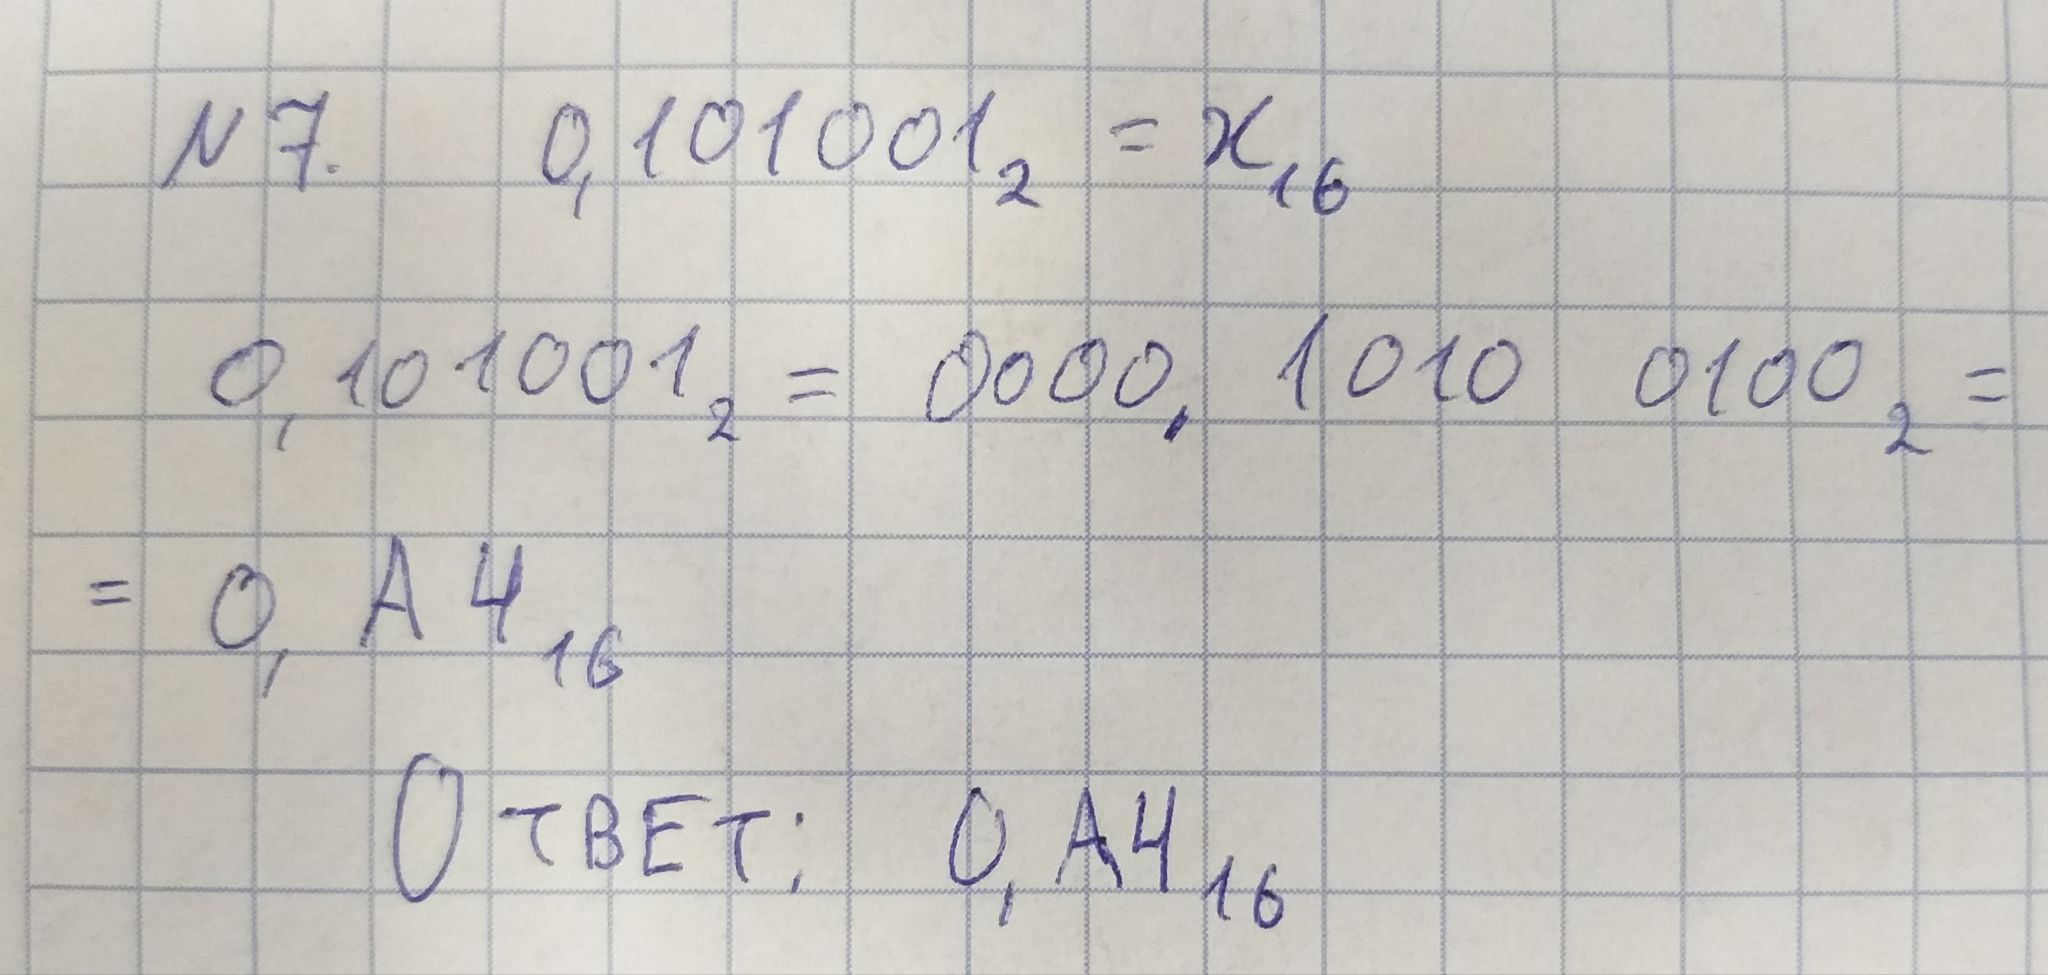 N7. 0,101001₂ = x₁₆
0,101001₂ = 0000, 1010 0100₂ =
= 0, A4₁₆
Ответ: 0, A4₁₆